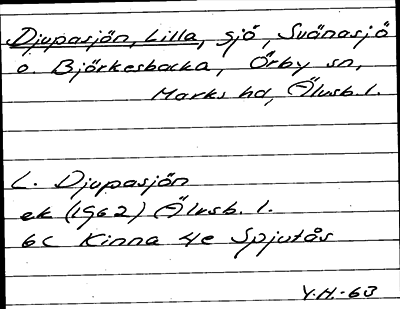 Djupasjön, Lilla, sjö, Svänasjö
o. Björkesbacka, Örby sn,
Marks hd, Älvsb. l.
L. Djupasjön
ek (1962) Älvsb. l.
6c Kinna 4e Spjutås
Y.H.-63